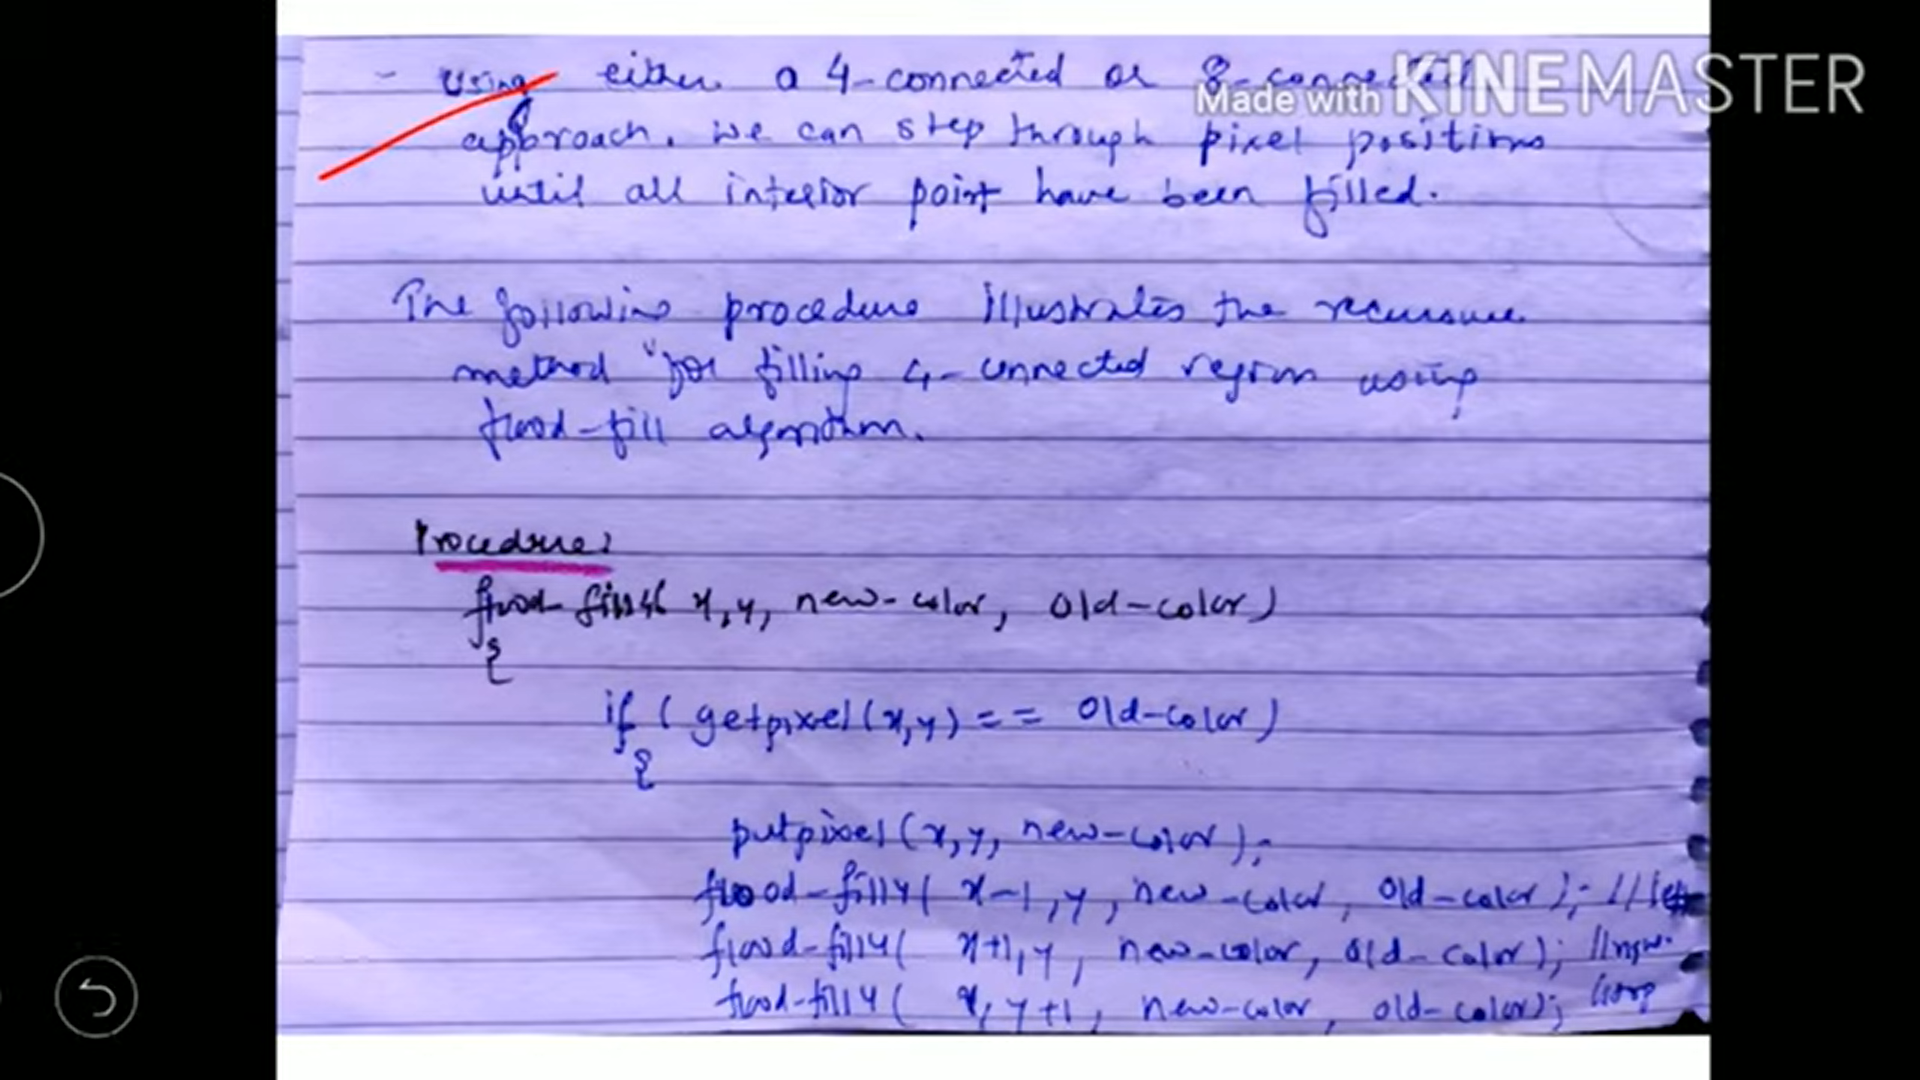 - Using either a 4-connected or 8-connected
Made with KINEMASTER
approach. we can step through pixel positions
until all interior point have been filled.
The following procedure illustrates the recursive
method for filling 4-connected region using
flood-fill algorithm.
Procedure:
flood-fill4( x,y, new-color, old-color)
{
if ( getpixel(x,y) == old-color)
{
putpixel(x,y, new-color);
flood-fill4( x-1,y, new-color, old-color); //left
flood-fill4( x+1,y, new-color, old-color);
flood-fill4( x, y+1, new-color, old-color);